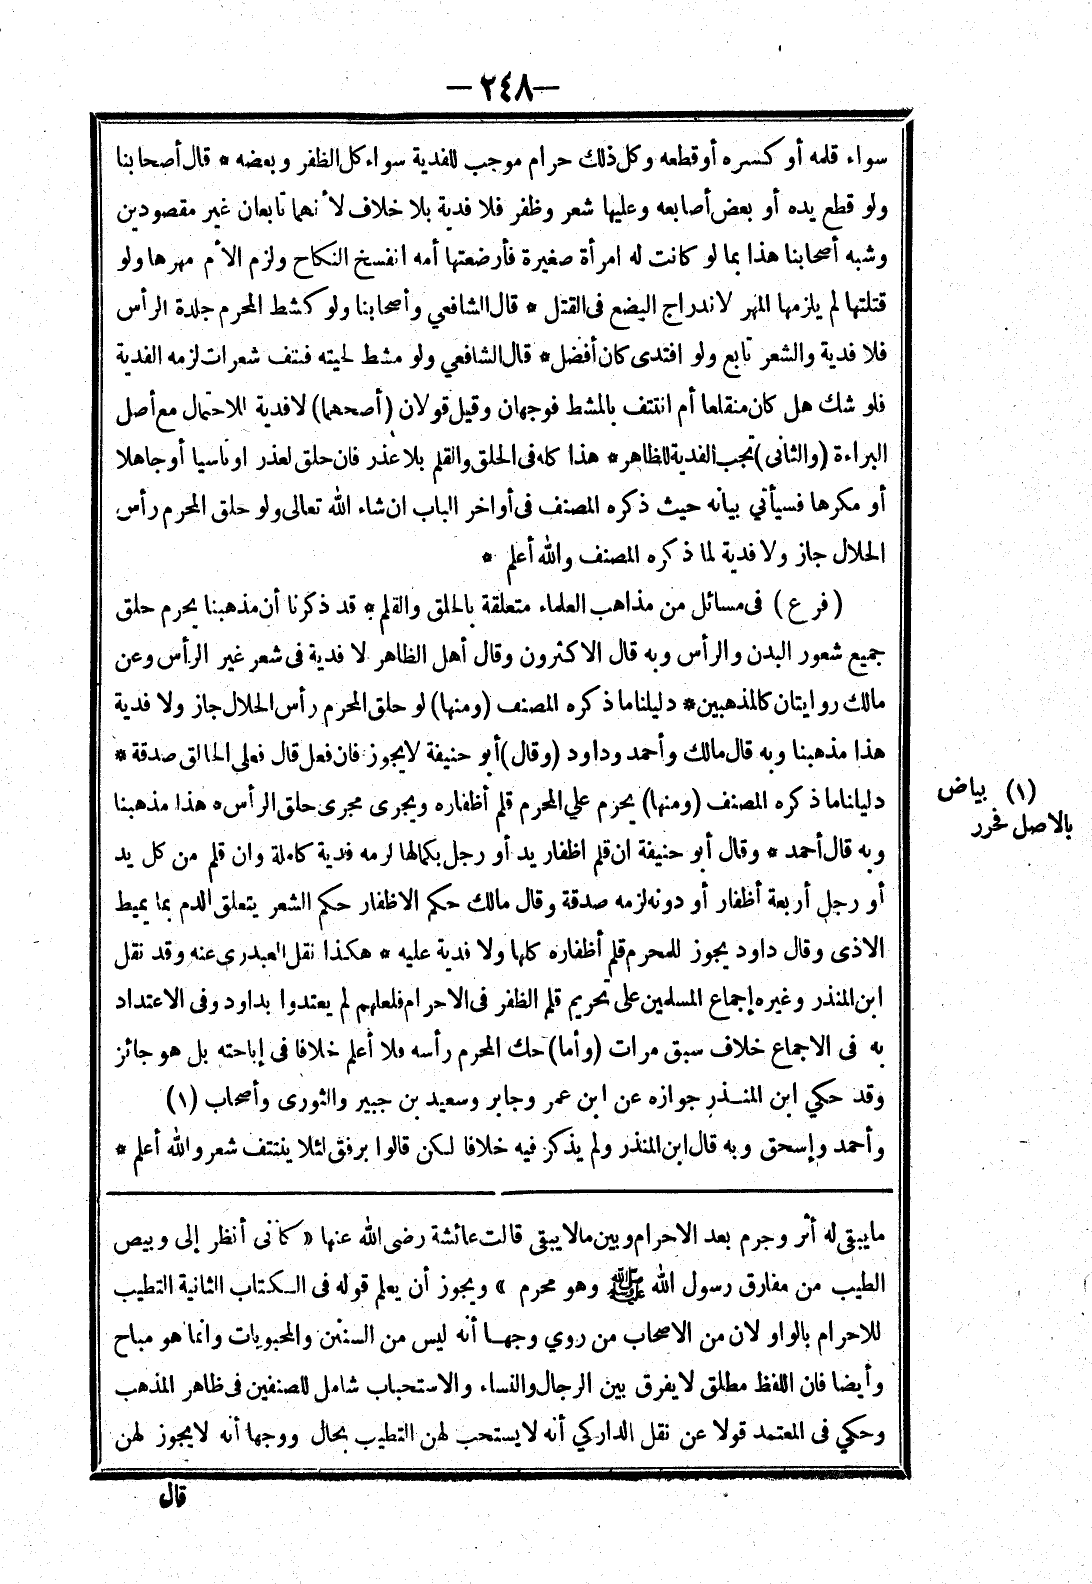 —٢٤٨—
سواء قلمه أو كسره أو قطعه وكل ذلك حرام موجب للفدية سواء كل الظفر وبعضه * قال أصحابنا
ولو قطع يده أو بعض أصابعه وعليها شعر وظفر فلا فدية بلا خلاف لأنهما تابعان غير مقصودين
وشبه أصحابنا هذا بما لو كانت له امرأة صغيرة فأرضعتها أمه انفسخ النكاح ولزم الأم مهرها ولو
قتلتها لم يلزمها المهر لاندراج البضع فى القتل * قال الشافعي وأصحابنا ولو كشط المحرم جلدة الرأس
فلا فدية والشعر تابع ولو افتدى كان أفضل * قال الشافعي ولو مشط لحيته فنتف شعرات لزمه الفدية
فلو شك هل كان منقلعا أم انتتف بالمشط فوجهان وقيل قولان (أصحهما) لا فدية للاحتمال مع أصل
البراءة (والثانى) تجب الفدية للظاهر * هذا كله فى الحلق والقلم بلا عذر فان حلق لعذر او ناسيا أو جاهلا
أو مكرها فسيأتي بيانه حيث ذكره المصنف فى أواخر الباب ان شاء الله تعالى ولو حلق المحرم رأس
الحلال جاز ولا فدية لما ذكره المصنف والله أعلم *
(فرع) فى مسائل من مذاهب العلماء متعلقة بالحلق والقلم * قد ذكرنا أن مذهبنا يحرم حلق
جميع شعور البدن والرأس وبه قال الاكثرون وقال أهل الظاهر لا فدية فى شعر غير الرأس وعن
مالك روايتان كالمذهبين * دليلنا ما ذكره المصنف (ومنها) لو حلق المحرم رأس الحلال جاز ولا فدية
هذا مذهبنا وبه قال مالك وأحمد وداود (وقال) أبو حنيفة لا يجوز فان فعل قال فعلى الحالق صدقة *
دليلنا ما ذكره المصنف (ومنها) يحرم علي المحرم قلم أظفاره ويجرى مجرى حلق الرأس * هذا مذهبنا
وبه قال أحمد * وقال أبو حنيفة ان قلم اظفار يد أو رجل بكمالها لزمه فدية كاملة وان قلم من كل يد
أو رجل أربعة أظفار أو دونه لزمه صدقة وقال مالك حكم الاظفار حكم الشعر يتعلق الدم بما يميط
الاذى وقال داود يجوز للمحرم قلم أظفاره كلها ولا فدية عليه * هكذا نقل العبدرى عنه وقد نقل
ابن المنذر وغيره إجماع المسلمين على تحريم قلم الظفر فى الاحرام فلعلهم لم يعتدوا بداود وفى الاعتداد
به فى الاجماع خلاف سبق مرات (وأما) حك المحرم رأسه فلا أعلم خلافا فى إباحته بل هو جائز
وقد حكي ابن المنذر جوازه عن ابن عمر وجابر وسعيد بن جبير والثورى وأصحاب (١)
وأحمد وإسحق وبه قال ابن المنذر ولم يذكر فيه خلافا لكن قالوا برفق لئلا ينتتف شعر والله أعلم *
(١) بياض
بالاصل فحرر
ما يبقى له أثر وجرم بعد الاحرام وبين ما لا يبقى قالت عائشة رضى الله عنها « كأنى أنظر إلى وبيص
الطيب من مفارق رسول الله ﷺ وهو محرم » ويجوز أن يعلم قوله فى الكتاب الثانية التطيب
للاحرام بالواو لان من الاصحاب من روي وجها أنه ليس من السنن والمحبوبات وانما هو مباح
وأيضا فان اللفظ مطلق لا يفرق بين الرجال والنساء والاستحباب شامل للصنفين فى ظاهر المذهب
وحكي فى المعتمد قولا عن نقل الداركي أنه لا يستحب لهن التطيب بحال ووجها أنه لا يجوز لهن
قال